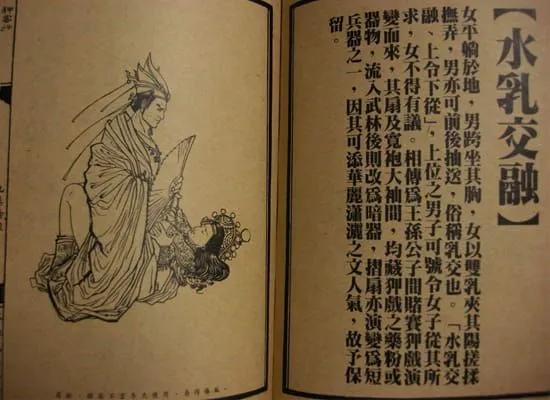 【水乳交融】
女平躺於地，男跨坐其胸，女以雙乳夾其陽搓揉
撫弄，男亦可前後抽送，俗稱乳交也。「水乳交
融、上令下從」，上位之男子可號令女子從其所
求，女不得有議。相傳爲王孫公子間賭賽狎戲演
變而來，其扇及寬袍大袖間，均藏狎戲之藥粉或
器物，流入武林後則改爲暗器，摺扇亦演變爲短
兵器之一，因其可添華麗瀟灑之文人氣，故予保
留。